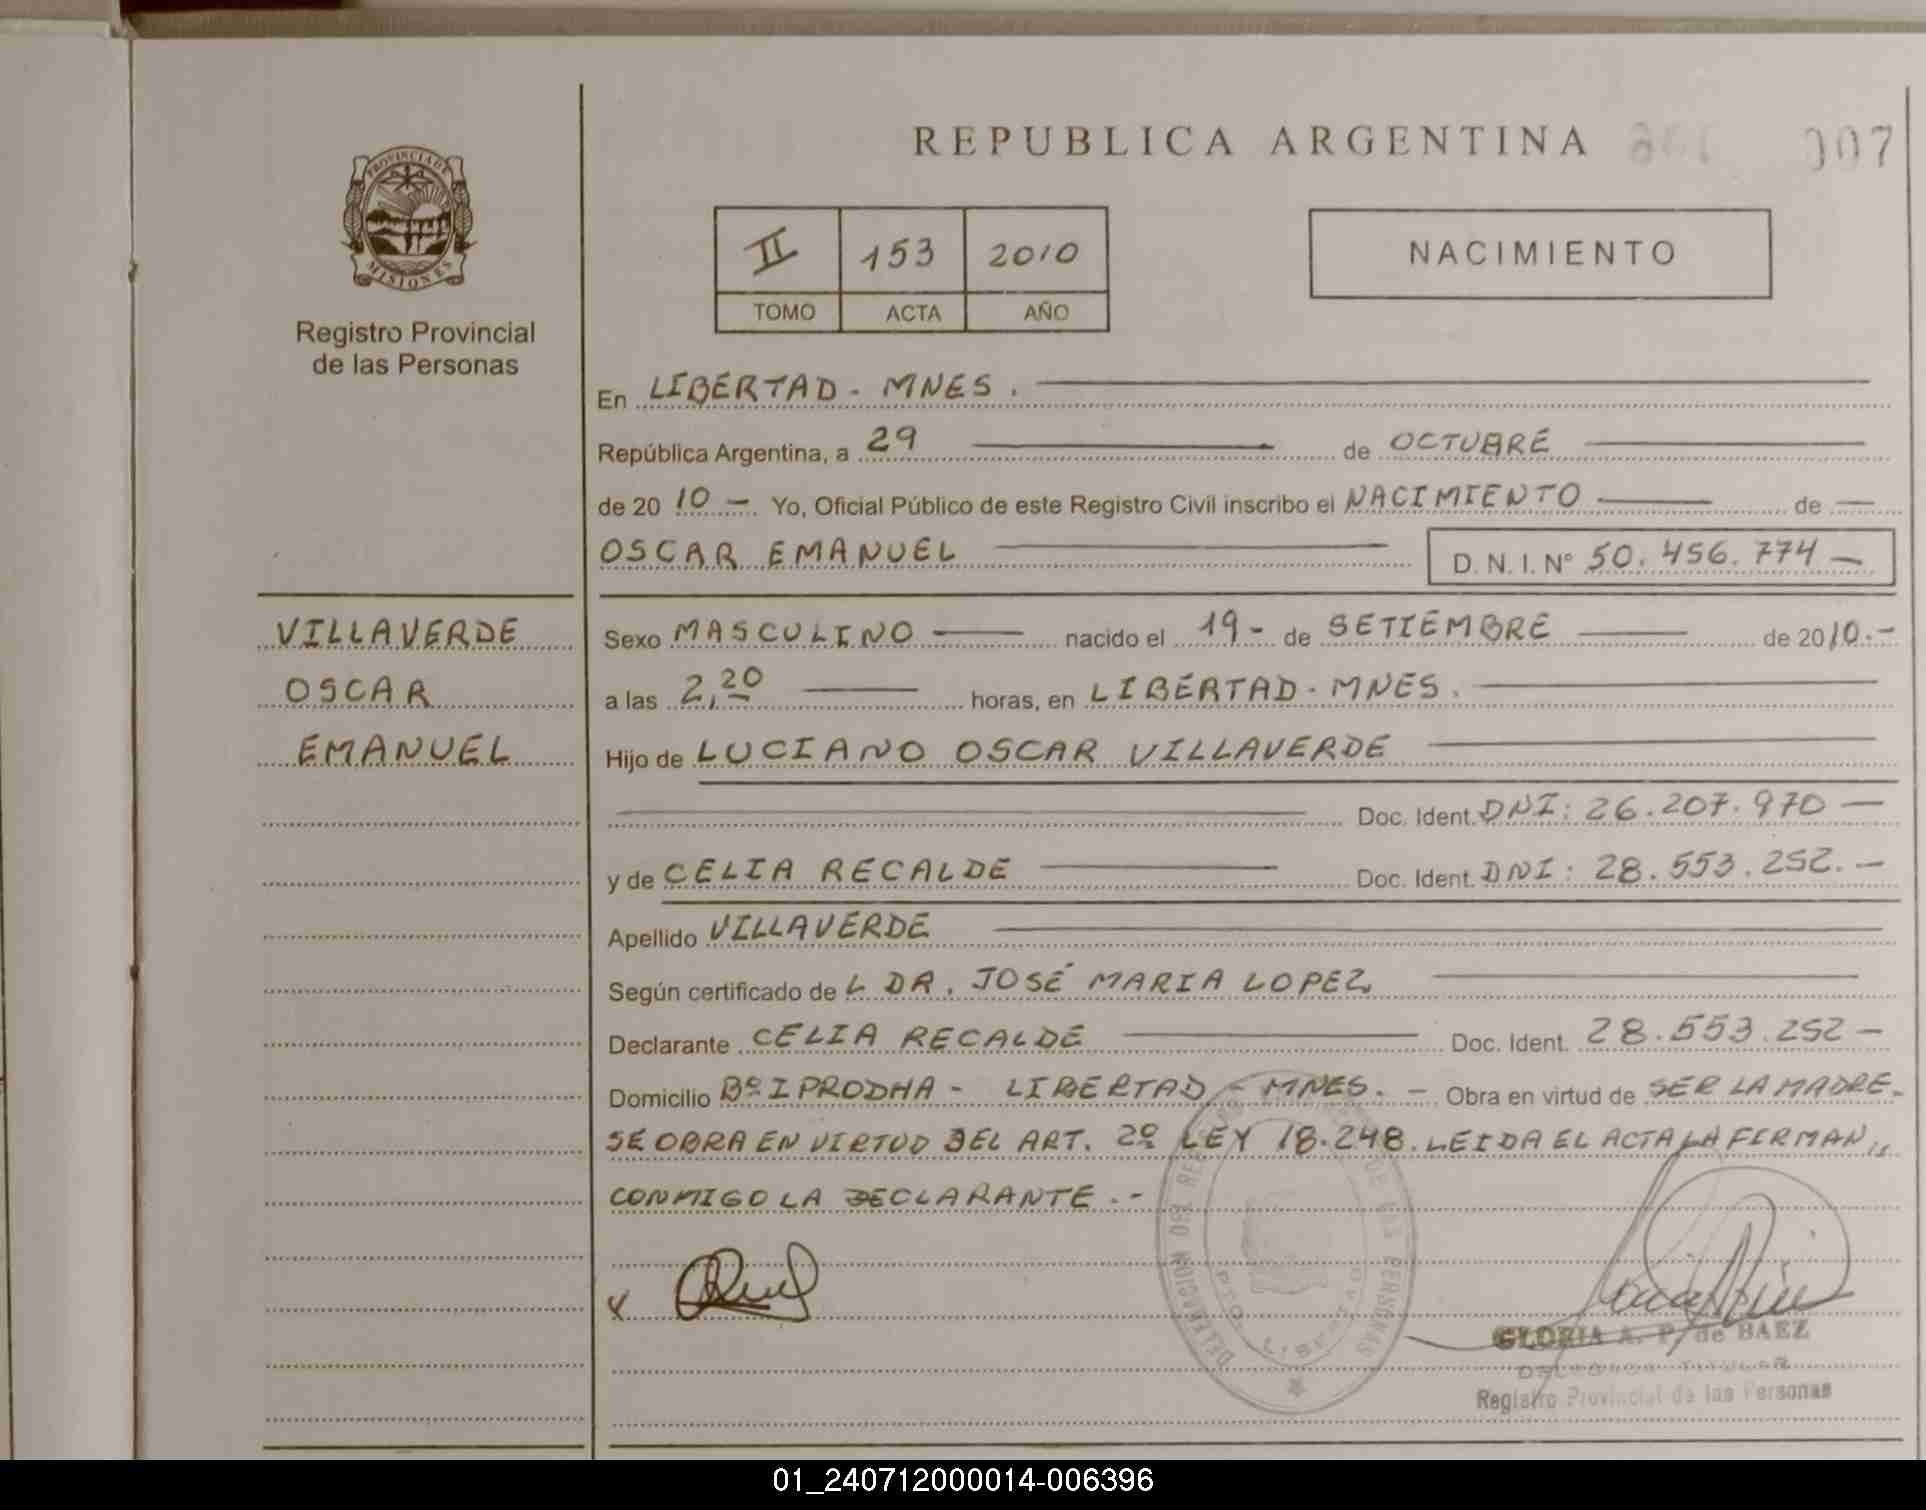 REPUBLICA ARGENTINA
007
PROVINCIA DE
MISIONES
Registro Provincial
de las Personas
II 153 2010
TOMO ACTA AÑO
NACIMIENTO
En LIBERTAD - MNES.
República Argentina, a 29 de OCTUBRE
de 20 10 - Yo, Oficial Público de este Registro Civil inscribo el NACIMIENTO de -
OSCAR EMANUEL D. N. I. N° 50.456.774 -
VILLAVERDE
OSCAR
EMANUEL
Sexo MASCULINO nacido el 19 - de SETIEMBRE de 2010.-
a las 2,20 horas, en LIBERTAD - MNES.
Hijo de LUCIANO OSCAR VILLAVERDE
Doc. Ident. DNI: 26.207.970 -
y de CELIA RECALDE Doc. Ident. DNI: 28.553.252. -
Apellido VILLAVERDE
Según certificado de L DR. JOSÉ MARIA LOPEZ
Declarante CELIA RECALDE Doc. Ident. 28.553.252 -
Domicilio Bº IPRODHA - LIBERTAD - MNES. - Obra en virtud de SER LA MADRE.-
SE OBRA EN VIRTUD DEL ART. 2º LEY 18.248. LEIDA EL ACTA LA FIRMAN,,
CONMIGO LA DECLARANTE.-
DELEGACION DEL REGISTRO DE LAS PERSONAS
LIBERTAD
GLORIA A. P. de BAEZ
DELEGADA TITULAR
Registro Provincial de las Personas
01_240712000014-006396